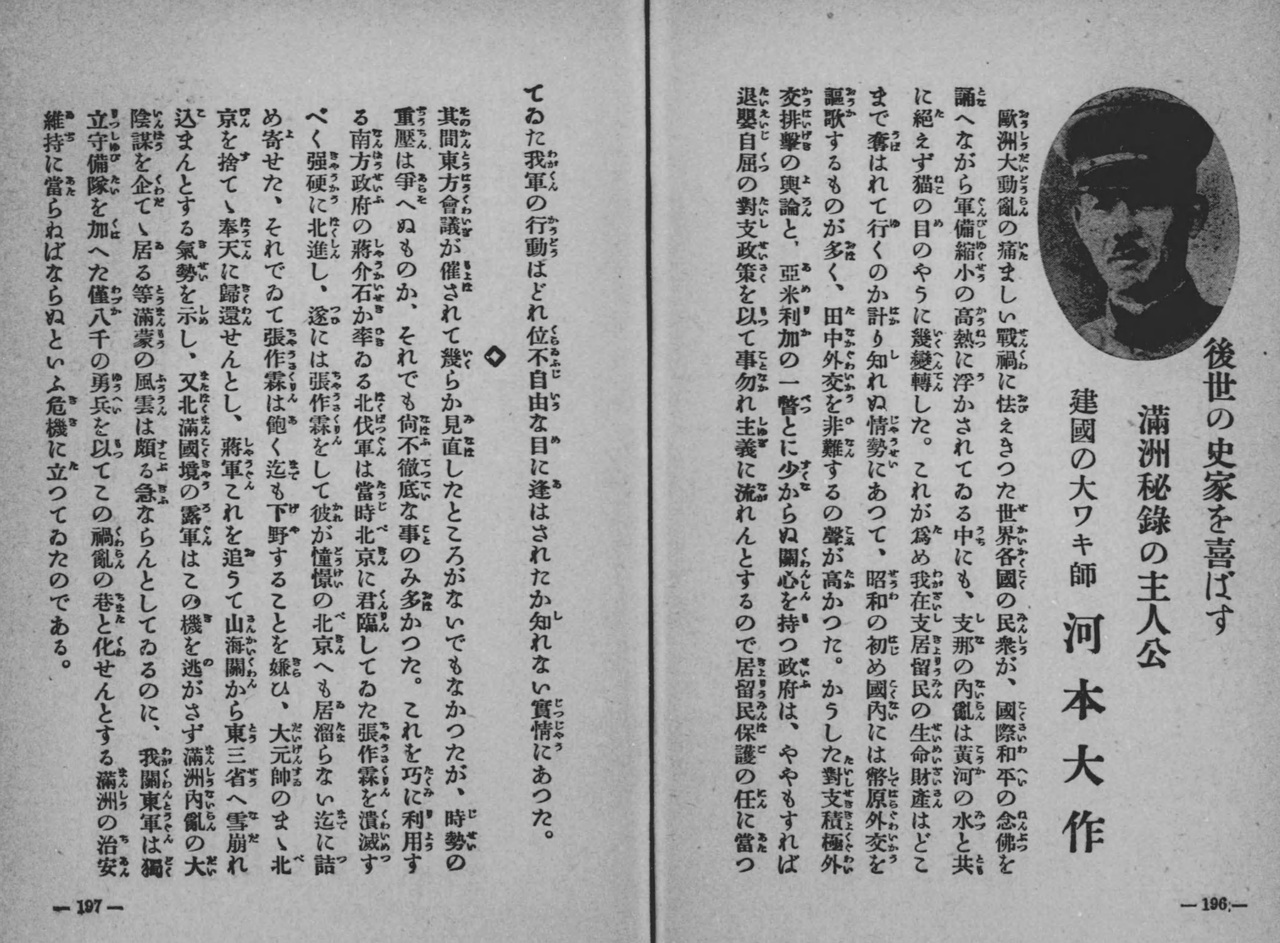 後世の史家を喜ばす
滿洲秘錄の主人公
建國の大ワキ師 河本大作
歐洲大動亂の痛ましい戰禍に怯えきつた世界各國の民衆が、國際和平の念佛を
誦へながら軍備縮小の高熱に浮かされてゐる中にも、支那の內亂は黃河の水と共
に絕えず猫の目のやうに幾變轉した。これが爲め我在支居留民の生命財產はどこ
まで奪はれて行くのか計り知れぬ情勢にあつて、昭和の初め國內には幣原外交を
謳歌するものが多く、田中外交を非難するの聲が高かつた。かうした對支積極外
交排擊の輿論と、亞米利加の一瞥とに少からぬ關心を持つ政府は、ややもすれば
退嬰自屈の對支政策を以て事勿れ主義に流れんとするので居留民保護の任に當つ
― 196 ―
てゐた我軍の行動はどれ位不自由な目に逢はされたか知れない實情にあつた。
◇
其間東方會議が催されて幾らか見直したところがないでもなかつたが、時勢の
重壓は爭へぬものか、それでも尙不徹底な事のみ多かつた。これを巧に利用す
る南方政府の蔣介石か率ゐる北伐軍は當時北京に君臨してゐた張作霖を潰滅す
べく强硬に北進し、遂には張作霖をして彼が憧憬の北京へも居溜らない迄に詰
め寄せた、それでゐて張作霖は飽く迄も下野することを嫌ひ、大元帥のまゝ北
京を捨てゝ奉天に歸還せんとし、蔣軍これを追うて山海關から東三省へ雪崩れ
込まんとする氣勢を示し、又北滿國境の露軍はこの機を逃がさず滿洲內亂の大
陰謀を企てゝ居る等滿蒙の風雲は頗る急ならんとしてゐるのに、我關東軍は獨
立守備隊を加へた僅八千の勇兵を以てこの禍亂の巷と化せんとする滿洲の治安
維持に當らねばならぬといふ危機に立つてゐたのである。
― 197 ―